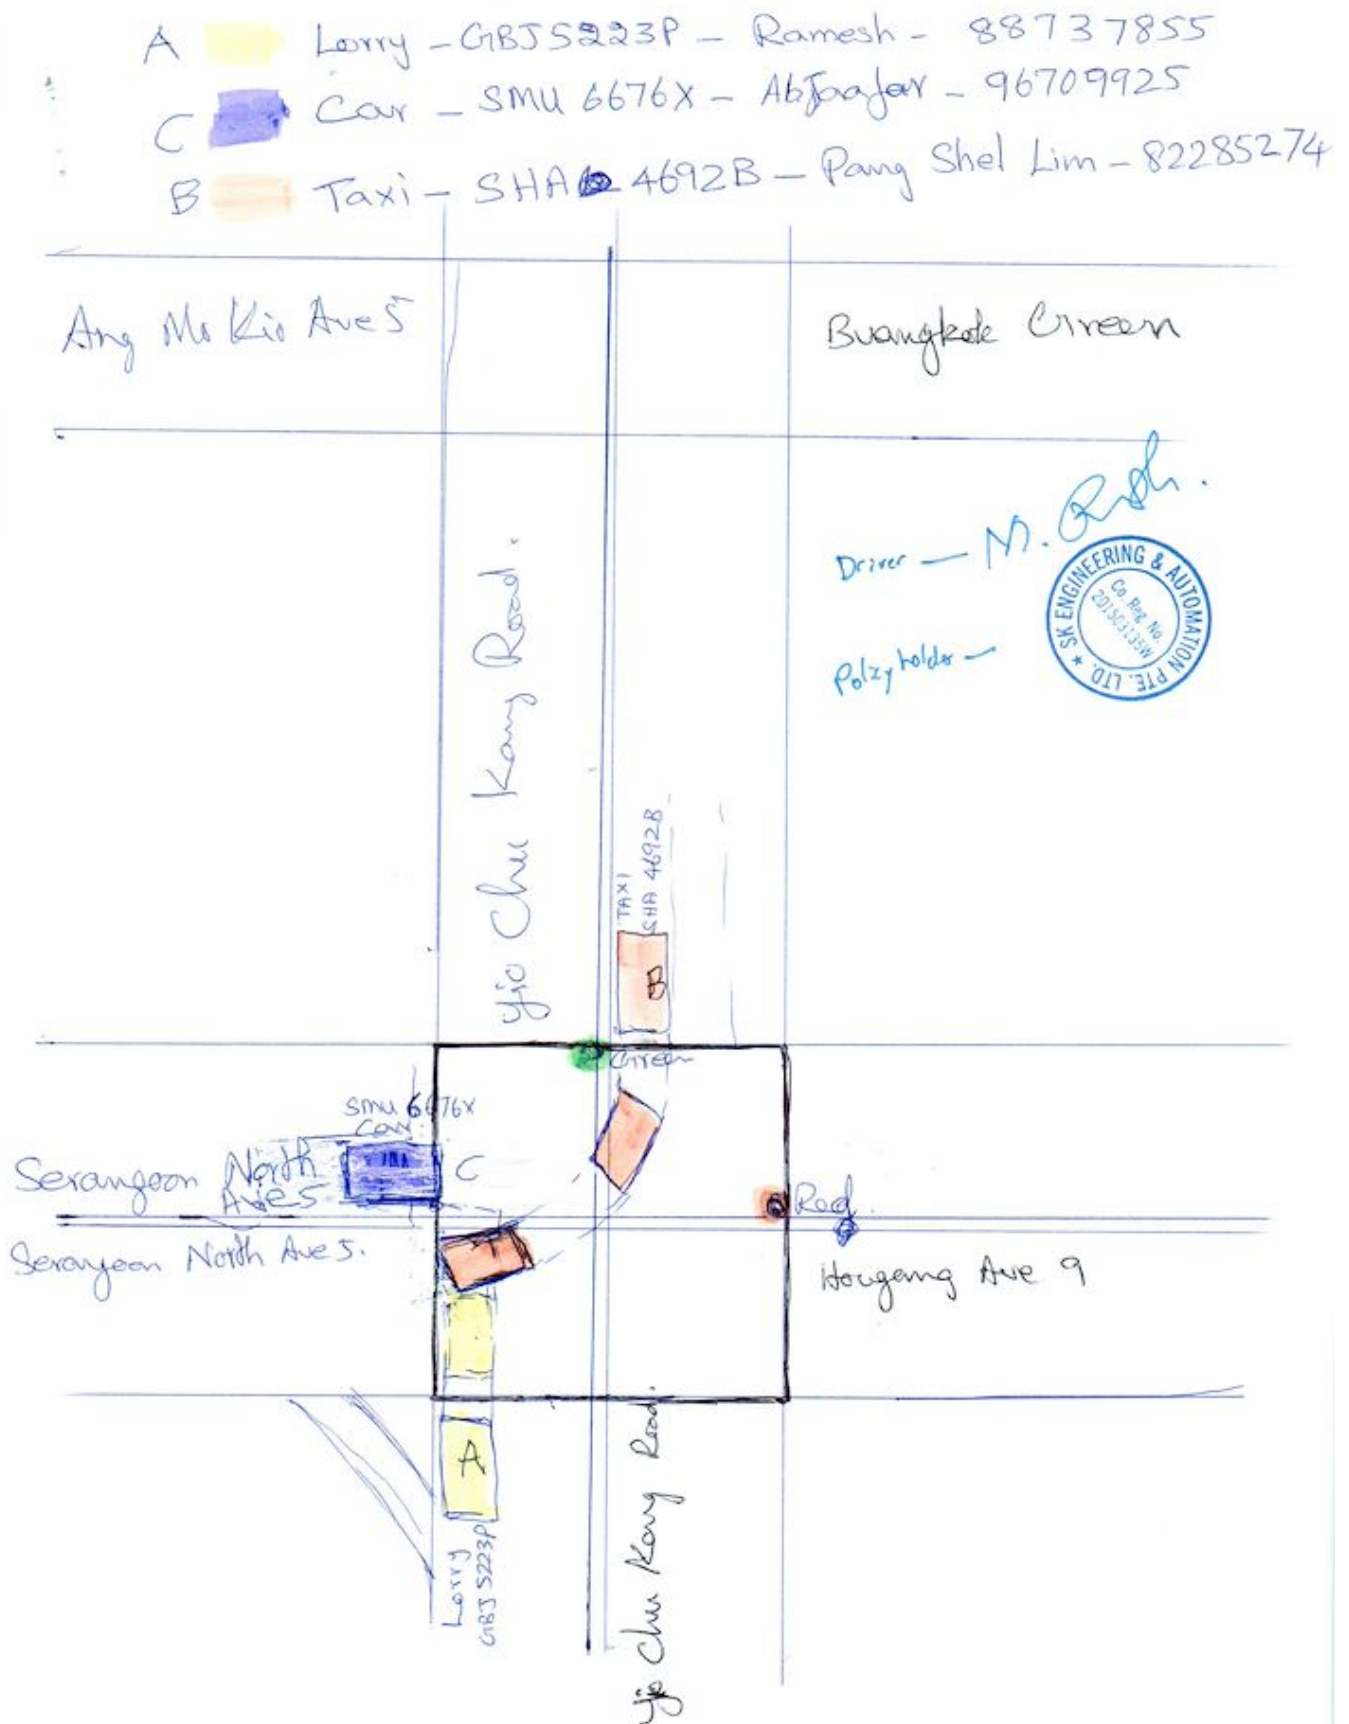 A Lorry - GBJ5223P - Ramesh - 88737855
C Car - SMU 6676X - AbJaafar - 96709925
B Taxi - SHA 4692B - Pang Shel Lim - 82285274
Ang Mo Kio Ave 5
Buangkok Green
Driver - M.
SK ENGINEERING & AUTOMATION PTE. LTD. ★
Co. Reg. No.
Policyholder -
Yio Chu Kang Road.
TAXI
SHA 4692B
B
Green
SMU 6676X
Car
C
Serangoon North
Ave 5
Red
Serangoon North Ave 5.
Hougang Ave 9
A
Lorry
GBJ 5223P
Yio Chu Kang Road.